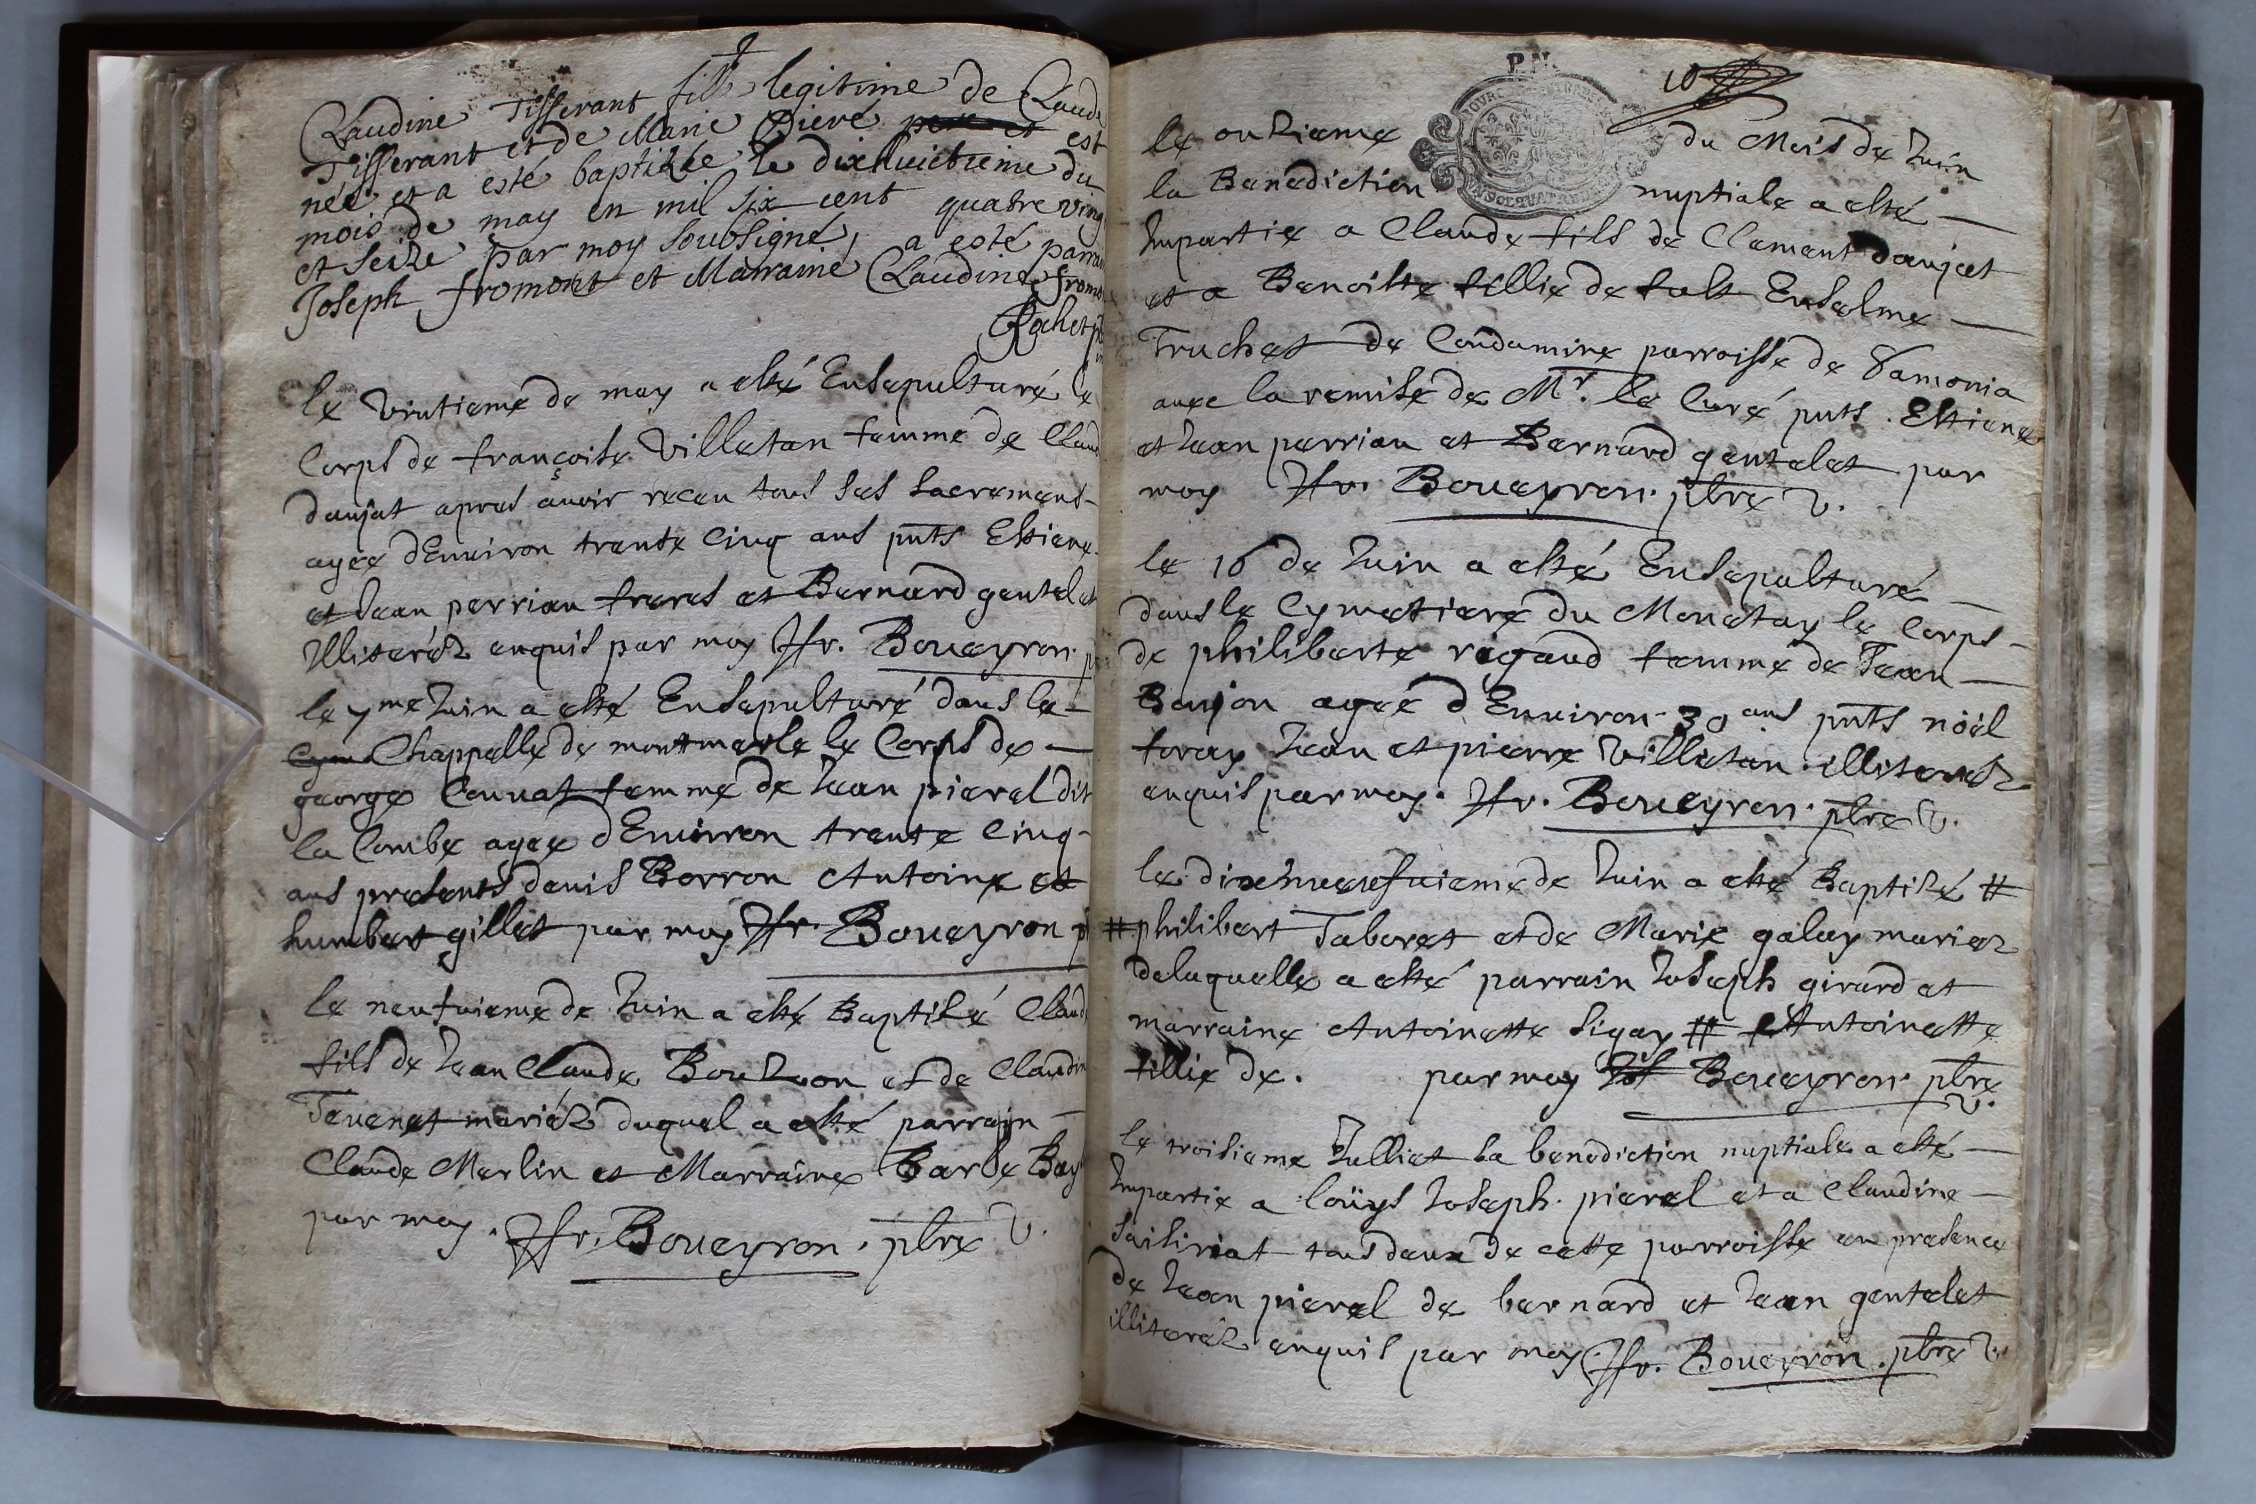 Claudine Tisserant fille legitime de Claude
Tisserant et de Marie Pieré pere et est
née et a esté baptizée le dixhuictieme du
mois de may en mil six cent quatre ving
et seize par moy soubsigné, a esté parrai
Joseph fromont et Marraine Claudine fromo
Rochet
le vintieme de may a esté Ensepulturé le
Corps de françoise Villetan femme de Claud
daujat apres avoir receu tous ses sacremens
agee dEnviron trente Cinq ans pnts Estiene
et Jean perrian freres et Bernard gentelet
Illiterez enquis par moy Jfr. Boueyron p
le 7me Juin a esté Ensepulturé dans la
cym Chappelle de montmerle le Corps de
george Connat femme de Jean pierel dit
la Combe agee dEnviron trente Cinq
ans presents denis Borron Antoine et
humbert gillet par moy Jfr. Boueyron p
le neufvieme de Juin a esté Baptisé Claud
fils de Jean Claude Bouzon et de Claudin
Tevenet mariéz duquel a esté parrain
Claude Merlin et Marraine Barbe Bay
par moy. Jfr. Boueyron. pbre V.
P.N.
10
le onzieme du Mois de Juin
la Benediction nuptiale a esté
Impartie a Claude fils de Clement daujat
et a Benoiste fillie de fult Enselme
Truchet de Condamine parroisse de
avec la remise de Mr. le Curé pnts. Estiene
et Jean perrian et Bernard gentelet par
moy Jfr. Boueyron. pbre V.
le 16 de Juin a esté Ensepulturé
dans le Cymetiere du Monetay le Corps
de philiberte rigaud femme de Jean
Baujon ageé dEnviron 30 ans pnts nöel
foray Jean et pierre Villetan illiterez
enquis par moy. Jfr. Boueyron. pbre V.
le dixneufvieme de Juin a esté Baptisé #
# philibert Taboret et de Marie galay mariez
delaquelle a esté parrain Joseph girard et
marraine Antoinette sigay # Antoinette
fillie de. par moy Boueyron. pbre
V.
le troisieme Julliet la benediction nuptiale a esté
Impartie a loüys Joseph. pierel et a Claudine
tous deux de cette parroisse en presence
de Jean pierel de bernard et Jean gentelet
illiteréz enquis par moy. Jfr. Boueyron. pbre V.